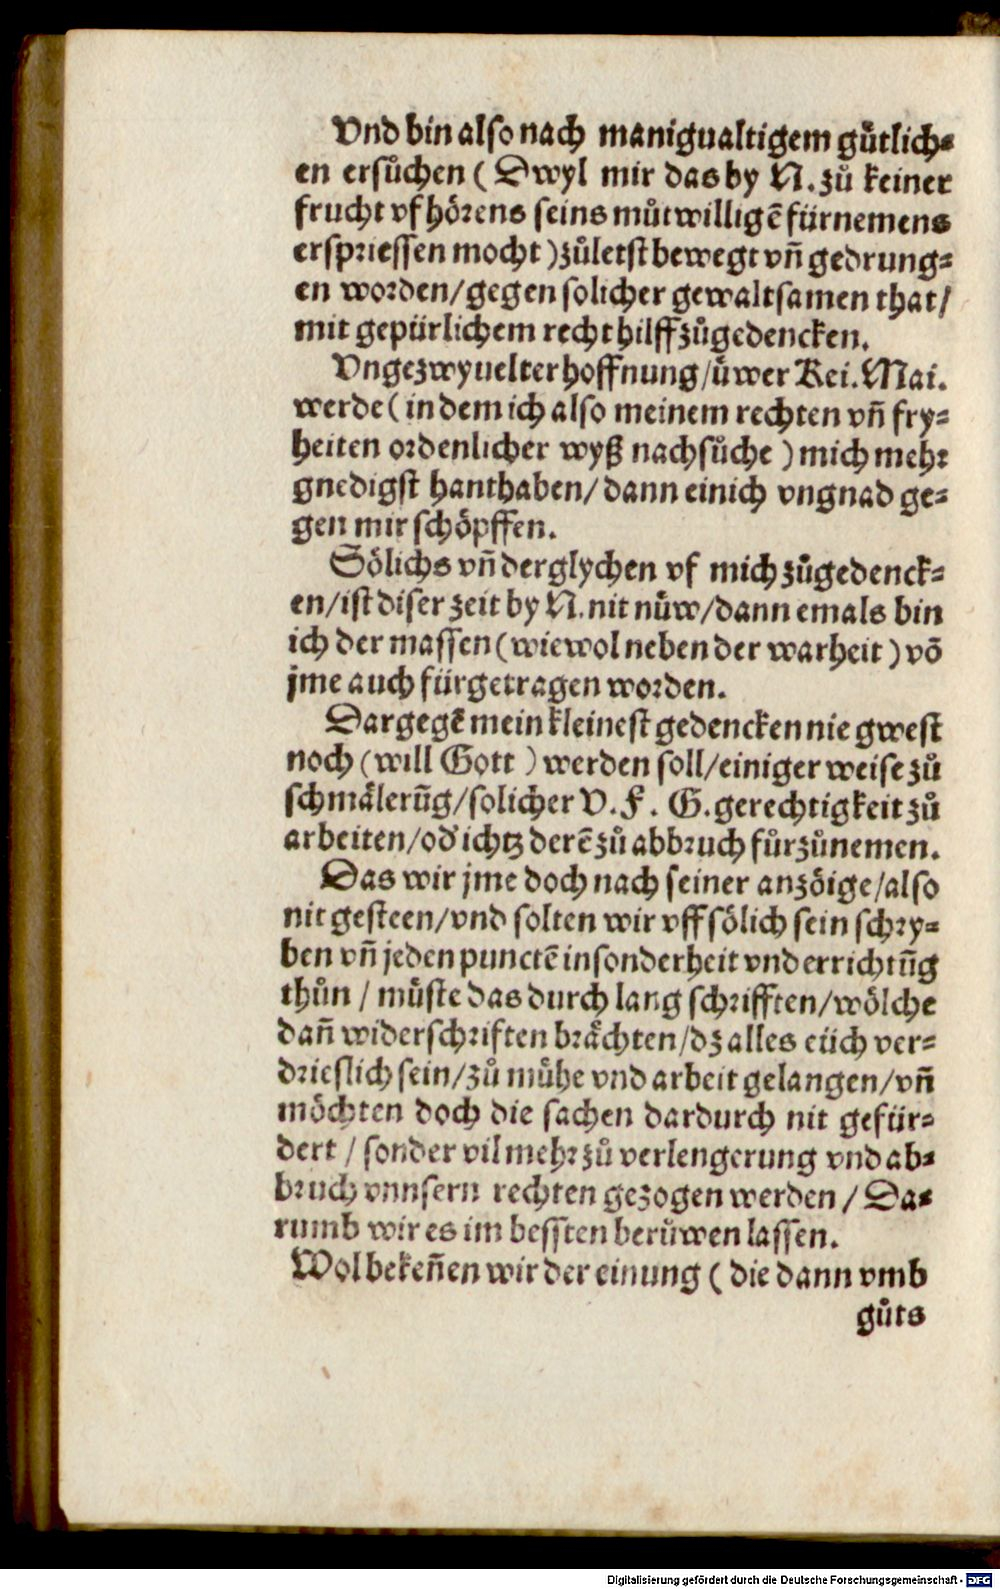 Vnd bin also nach manigualtigem gůtlich⸗
en ersůchen ( Dwyl mir das by N. zů keiner
frucht vfhörens seins můtwilligē fürnemens
erspriessen mocht ) zůletst bewegt vñ gedrung⸗
en worden/ gegen solicher gewaltsamen that/
mit gepürlichem recht hilff zůgedencken.
Vngezwyuelter hoffnung/ üwer Kei. Mai.
werde ( in dem ich also meinem rechten vñ fry⸗
heiten ordenlicher wyß nachsůche ) mich mehr
gnedigst hanthaben/ dann einich vngnad ge⸗
gen mir schöpffen.
Sölichs vñ derglychen vf mich zůgedenck⸗
en/ ist diser zeit by N. nit nüw/ dann emals bin
ich der massen ( wiewol neben der warheit ) vō
jme auch fürgetragen worden.
Dargegē mein kleinest gedencken nie gwest
noch ( will Gott ) werden soll/ einiger weise zů
schmälerūg/ solicher V. F. G. gerechtigkeit zů
arbeiten/ od' ichtz derē zů abbruch fürzůnemen.
Das wir jme doch nach seiner anzöige/ also
nit gesteen/ vnd solten wir vff sölich sein schry⸗
ben vñ jeden punctē insonderheit vnderrichtūg
thůn / müste das durch lang schrifften/ wölche
dañ widerschriften brächten/ dz alles eüch ver⸗
drieslich sein/ zů mühe vnd arbeit gelangen/ vñ
möchten doch die sachen dardurch nit gefür⸗
dert / sonder vil mehr zů verlengerung vnd ab⸗
bruch vnnsern rechten gezogen werden / Da⸗
rumb wir es im bessten berüwen lassen.
Wol bekeñen wir der einung ( die dann vmb
gůts
Digitalisierung gefördert durch die Deutsche Forschungsgemeinschaft - DFG